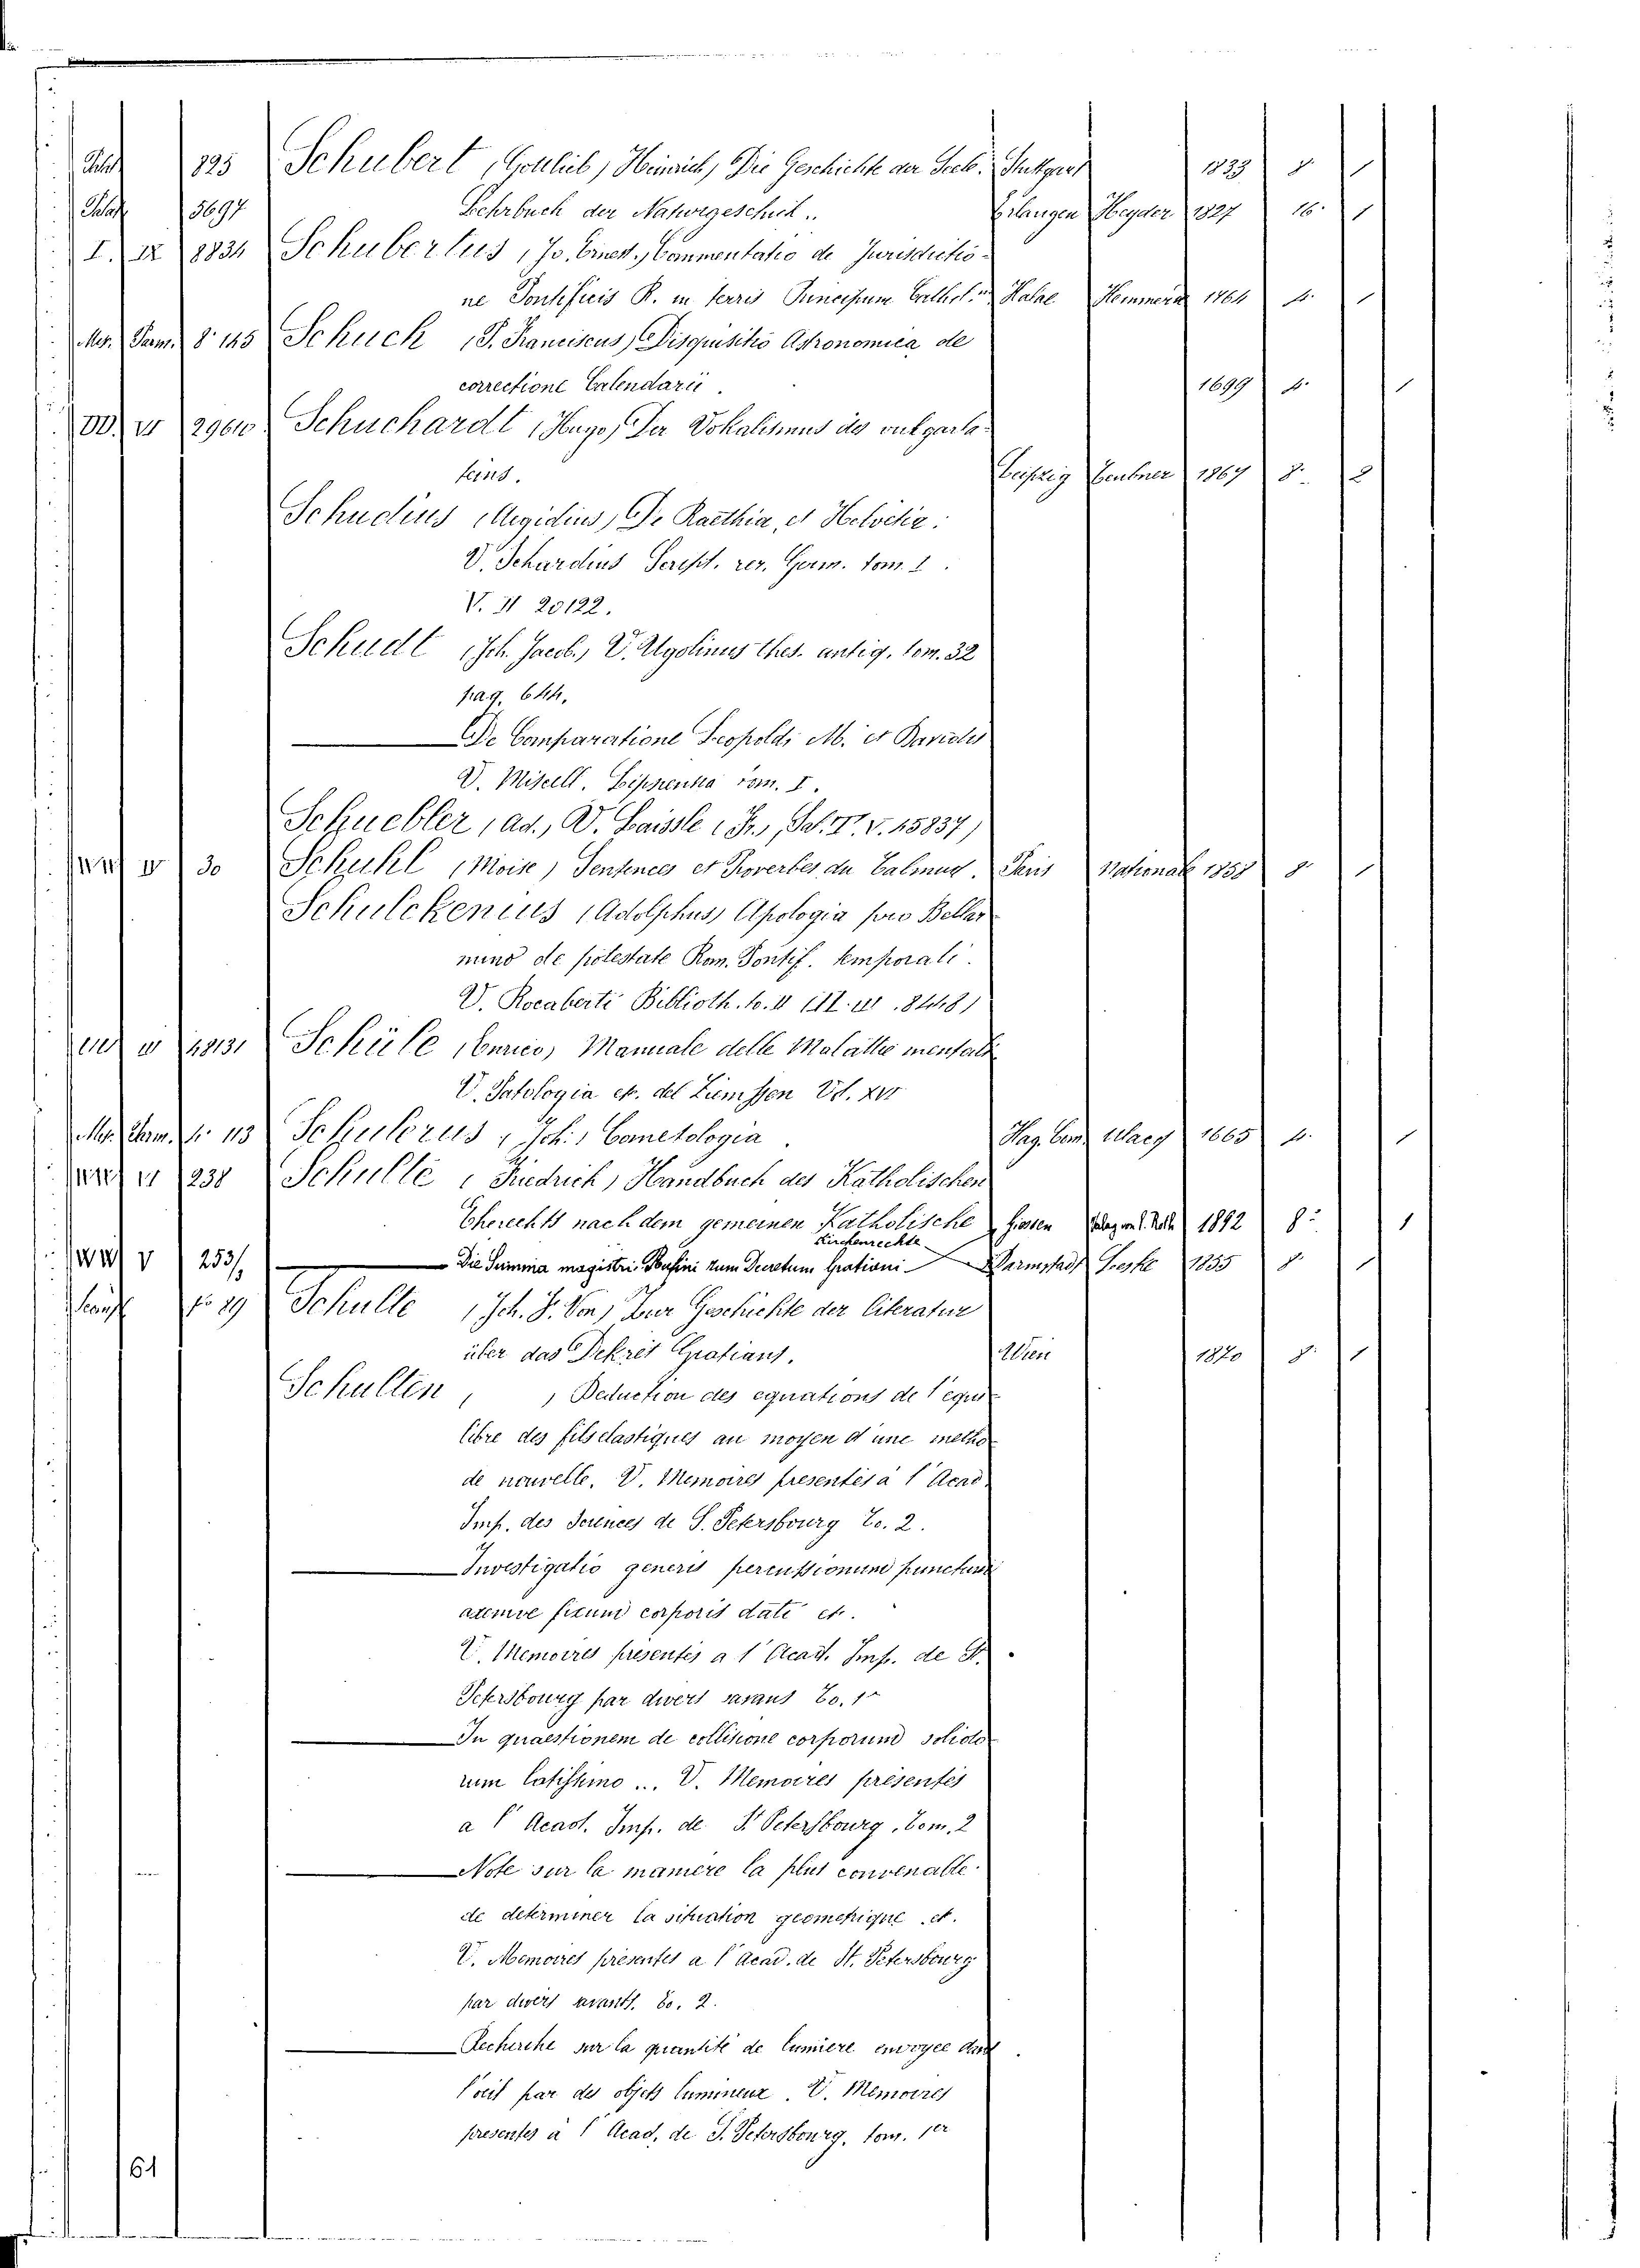 825 Schubert, (Gottlieb, Heinrich) Die Geschichte der Seele. Stuttgart 1833 8. 1
5697 Lehrbuch der Naturgeschich.. Erlangen Heyder 1827 16. 1
I. IX 8834 Schubertus, (Jo. Ernest.) Commentatio de Jurisdictio-
ne Pontificis R. in terris Principum Cathol.m Halae Hemmerd 1764 4. 1
Mss. Varm. 8. 145 Schuck (P. Franciscus) Disquisitio Astronomica de
correctione Calendarii. 1699 4. 1
VI 29610 Schuchardt (Hugo) Der Vokalismus des vulgarla-
teins. Leipzig Teubner 1867 8. 2
Schudius (Aegidius) De Raethia, et Helvetia.
V. Schardius Script. rer. Germ. tom. 1.
V. II 20122.
Schudt (Joh. Jacob.) V. Ugolinus thes. antiq. tom. 32
pag. 644.
De Comparatione Leopoldi M. et Davidis
V. Miscell. Lipsiensia tom. I.
Schuebler (ad.) V. Laissle (Fr.), Sch. T. V. 15837)
V 30 Schuhl (Moise) Sentences et Proverbes du Talmud. Paris Nationale 1858 8. 1
Schulckenius (Adolphus) Apologia pro Bellar-
mino de potestate Rom. Pontif. temporali.
V. Rocaberti Biblioth. to. II 8448)
48131 Schüle (Enrico) Manuale delle Malattie mentali
V. Patologia etc. del Ziemssen Vol. XVI
Mss. Varm. 4. 113 Schulerus, (Joh.) Cometologia. Hag. Com. Ulacq 1665 4. 1
VI 238 Schulte (Friedrich) Handbuch des Katholischen
Eherechts nach dem gemeinen Katholische Kirchenrechte Giessen Verlag von E. Roth 1892 8º 1
V 253/1 Die Summa magistri Rufini zum Decretum Gratiani Darmstadt Leske 1855 8. 1
fo 29 Schulte (Joh. F. Von) Zur Geschichte der Literatur
über das Dekret Gratians. Wien 1870 8. 1
Schulten, , Deduction des equations de l'equi-
libre des fils elastiques au moyen d'une metho-
de nouvelle. V. Memoires presentés à l'Acad.
Imp. des Sciences de S. Petersbourg To. 2.
Investigatio generis percussionum punctum
axemve fixum corporis dati etc.
V. Memoires presentés a l'Acad. Imp. de St.
Petersbourg par divers savans To. 1er
In quaestionem de collisione corporum solido-
rum latissimo... V. Memoires présentés
a l'Acad. Imp. de St Petersbourg, tom. 2
Note sur la maniere la plus convenable
de determiner la situation geometrique etc.
V. Memoires présentés a l'Acad. de St. Petersbourg
par divers savants. To. 2.
Recherche sur la quantité de lumiere envoyee dans
l'oeil par des objets lumineux. V. Memoires
presentes à l'Acad. de S. Petersbourg, tom. 1er
61